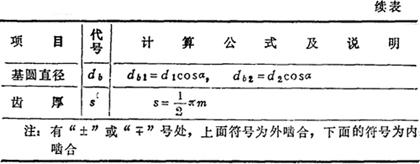 续表
项目 代号 计算公式及说明
基圆直径 d_b d_{b1}=d_1cosα, d_{b2}=d_2cosα
齿厚 s s=\frac{1}{2}πm
注: 有“±”或“∓”号处, 上面符号为外啮合, 下面的符号为内
啮合